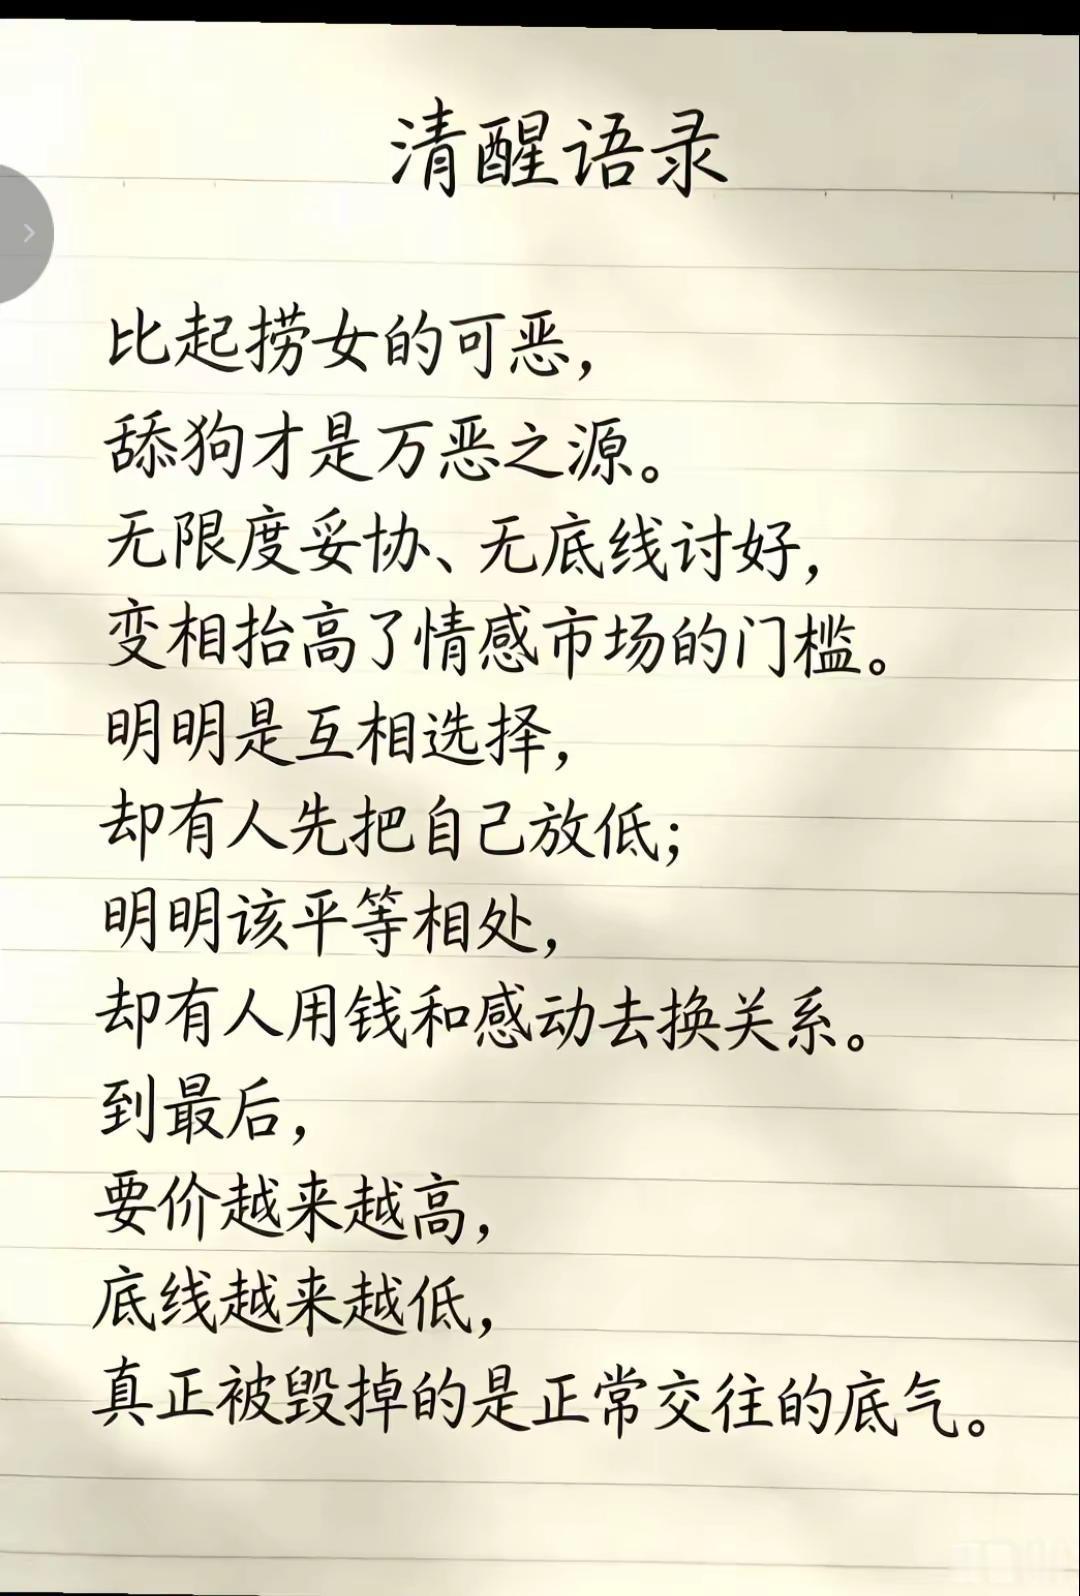 清醒语录
比起捞女的可恶，
舔狗才是万恶之源。
无限度妥协、无底线讨好，
变相抬高了情感市场的门槛。
明明是互相选择，
却有人先把自己放低；
明明该平等相处，
却有人用钱和感动去换关系。
到最后，
要价越来越高，
底线越来越低，
真正被毁掉的是正常交往的底气。